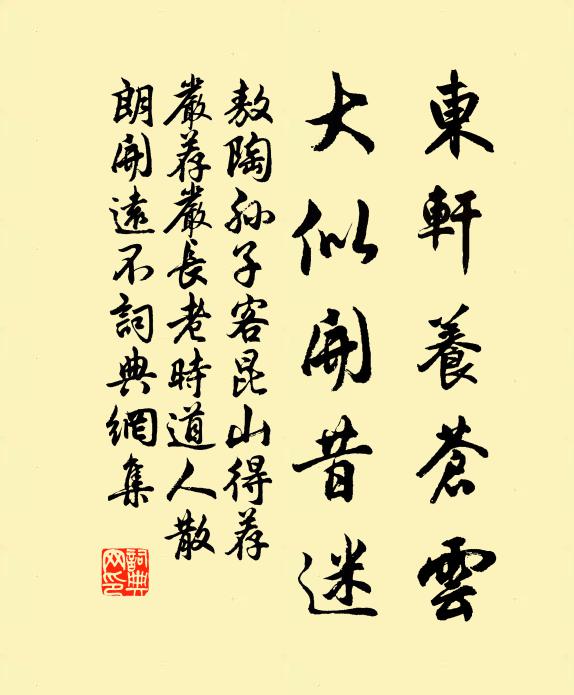 東軒養蒼雲
大似開昔迷
敖陶孙子客昆山得荐
嚴荐嚴長老時道人散
朗開遠不詞典網集
詞典網印